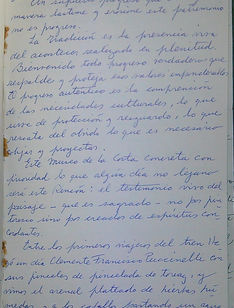 manera lastime y erosione este patrimonio
no es progreso.
La Tradición es la presencia viva
del acontecer realizado en plenitud.
Bienvenido todo progreso verdadero que
respalde y proteja esos valores
El progreso auténtico es la comprensión
de las necesidades culturales, lo que
sirve de protección y resguardo, lo que
rescata del olvido lo que es necesario
y proyectar.
Este Museo de la Costa concreta con
lo que algún día no lejano
será este Rincón: el testimonio vivo del
paisaje - que es sagrado - no por
sino por creador de espíritus
Entre los primeros viajeros del tren
un día Clemente Francisco con
sus pinceles de pincelada de y
el arenal plateado de hierbas